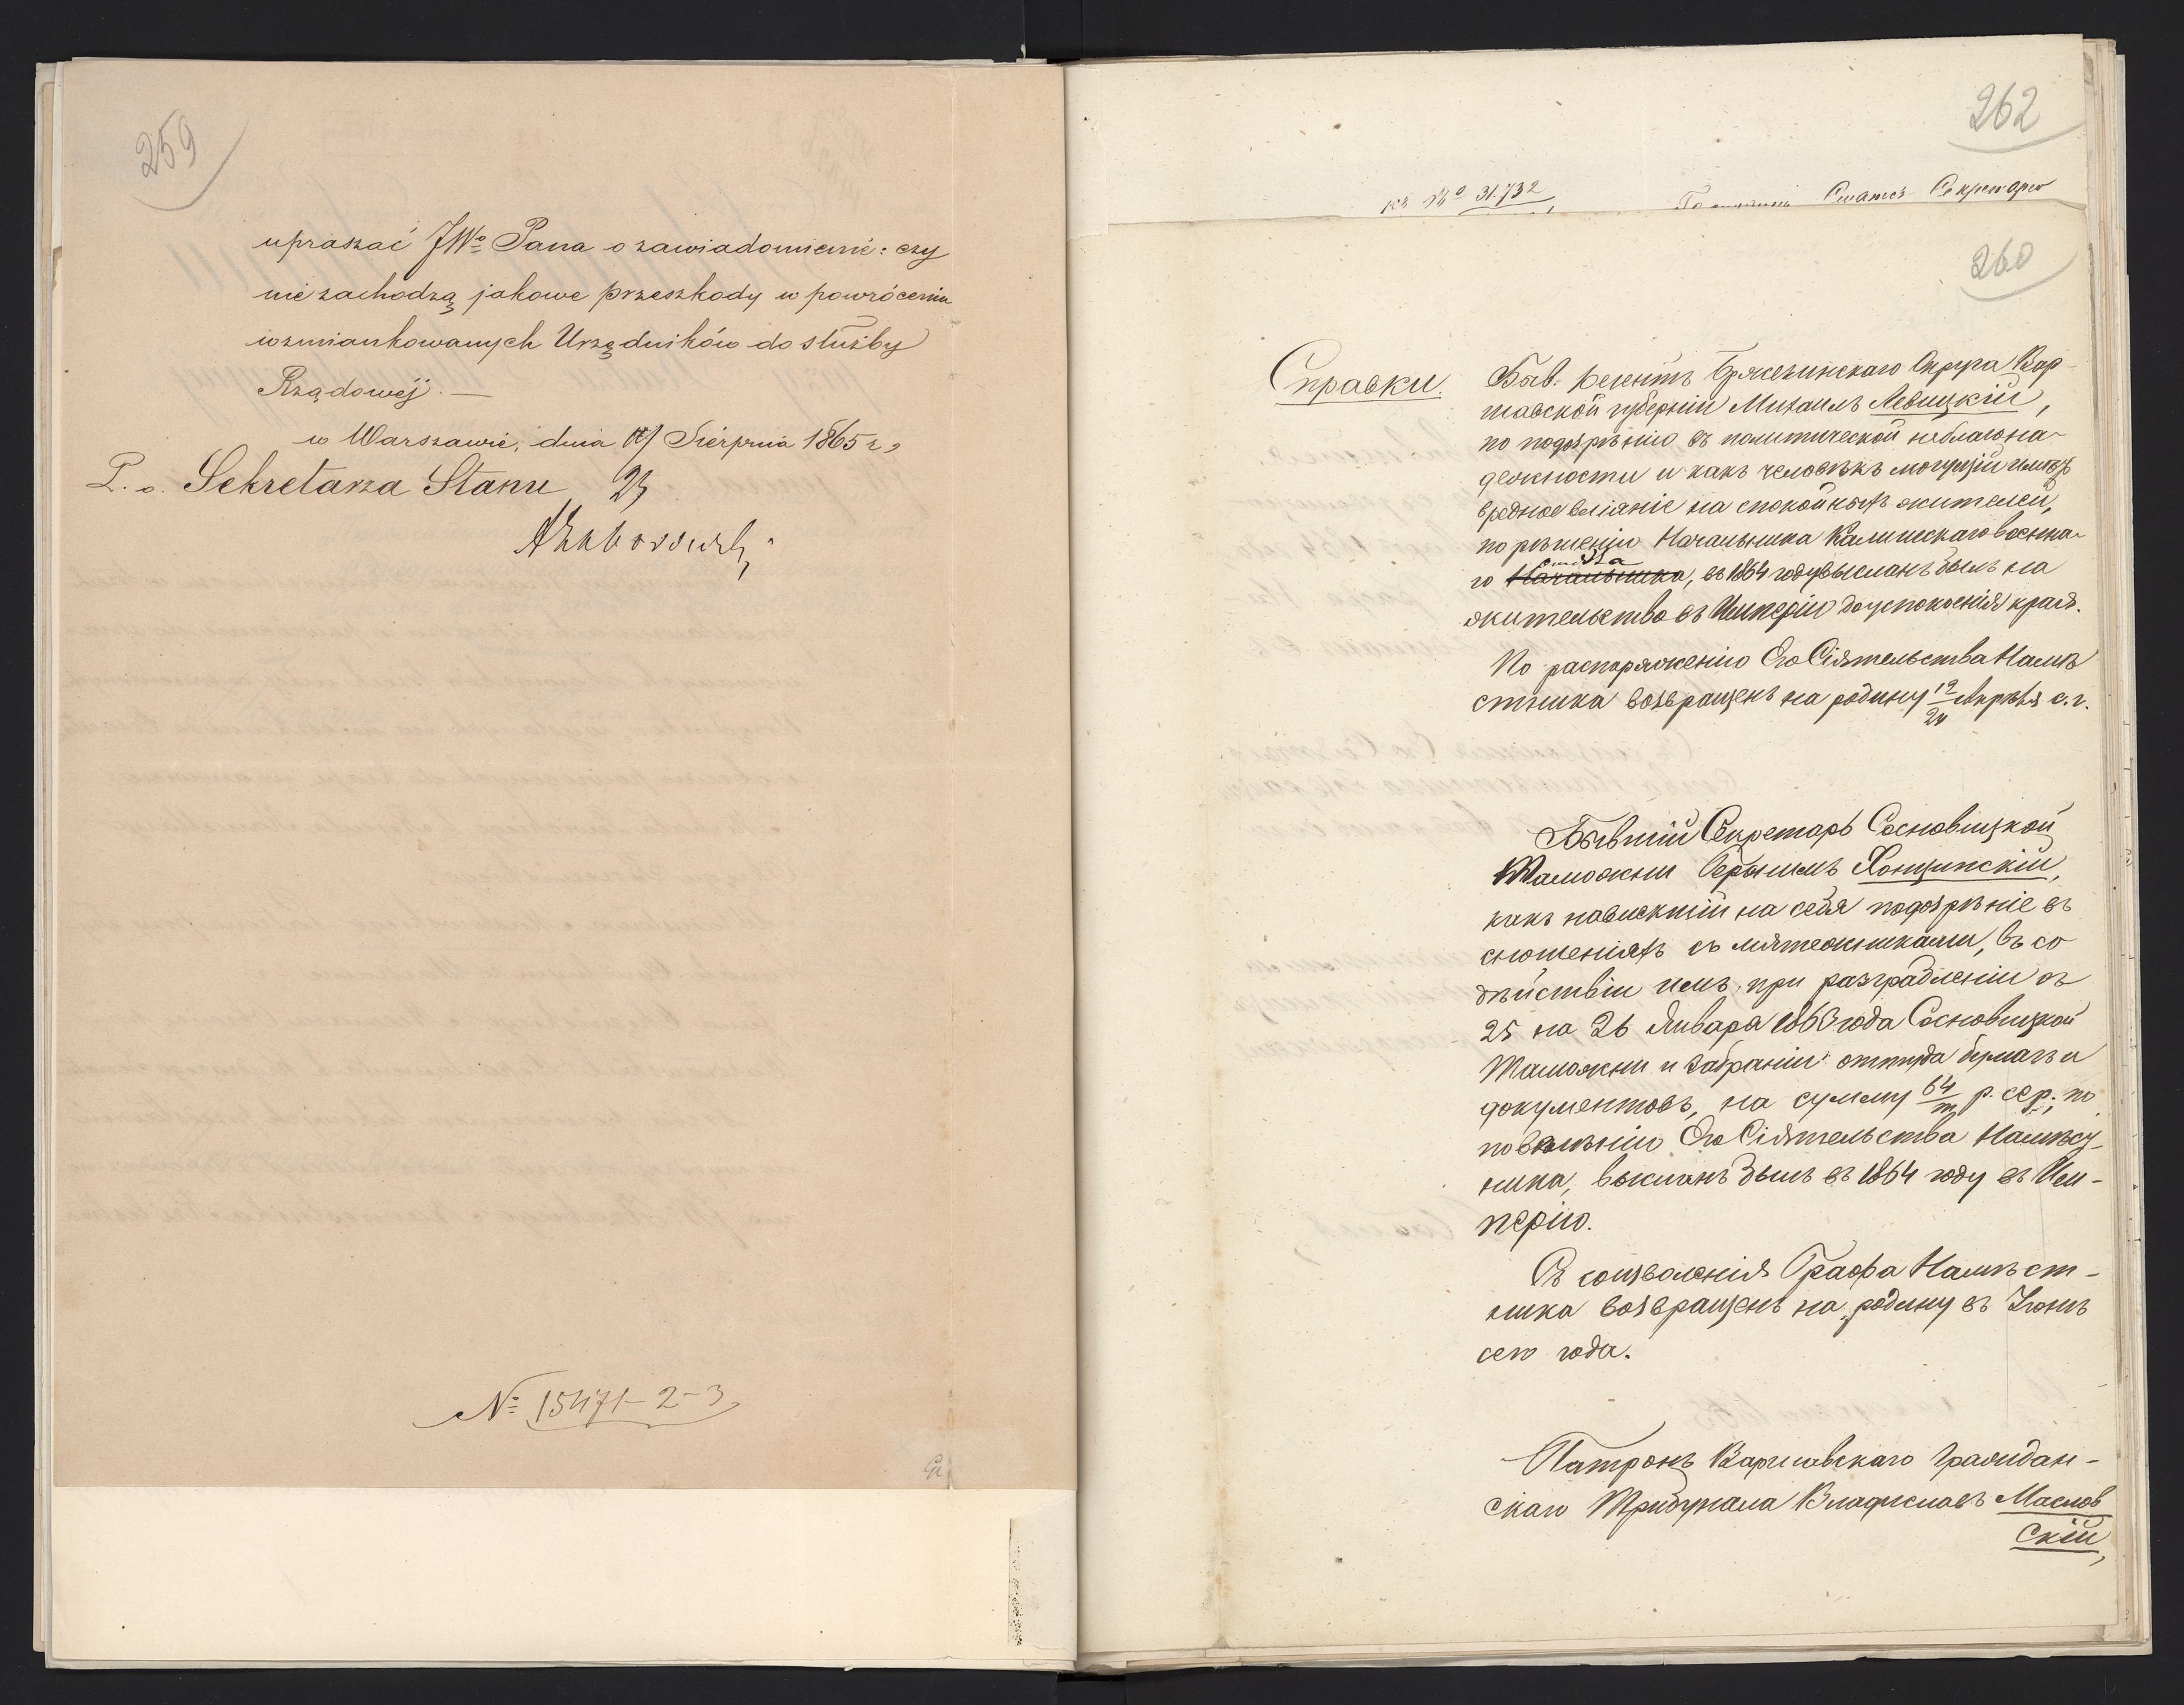 259
upraszać JWo Pana o zawiadomienie: czy
nie zachodzą jakowe przeszkody w powróceniu
wzmiankowanych Urzędników do służby
Rządowéj. —
w Warszawie, dnia Sierpnia 1865 r.
P. o. Sekretarza Stanu 23
№ 15471-2-3
262
къ № 31.732
Статсъ Секретарю
260
Справки.
Быв. Регентъ Брезинскаго Округа Вар-
шавской губерніи Михаилъ Левицкій,
по подозрѣнію въ политической неблагона-
дежности и какъ человѣкъ могущій имѣть
вредное вліяніе на спокойныхъ жителей,
по рѣшенію Начальника Калишскаго военна-
го отдѣла Начальника, въ 1864 году высланъ былъ на
жительство въ Имперію до успокоенія края.
По распоряженію Его Сіятельства Намѣ
стника возвращенъ на родину 12/24 Апрѣля с. г.
Бывшій Секретарь Сосновицкой
Таможни Іеронимъ Хонщинскій,
какъ навлекшій на себя подозрѣніе въ
сношеніяхъ съ мятежниками, въ со
дѣйствіи имъ при разграбленіи съ
25 на 26 Января 1863 года Сосновицкой
Таможни и забраніи оттуда бумагъ и
документовъ, на сумму 64/m р. сер., по
повелѣнію Его Сіятельства Намѣст-
ника, высланъ былъ въ 1864 году въ Им-
перію.
Съ соизволенія Графа Намѣст-
ника возвращенъ на родину въ Іюнѣ
сего года.
Патронъ Варшавскаго Граждан-
скаго Трибунала Владиславъ Маслов
скій,